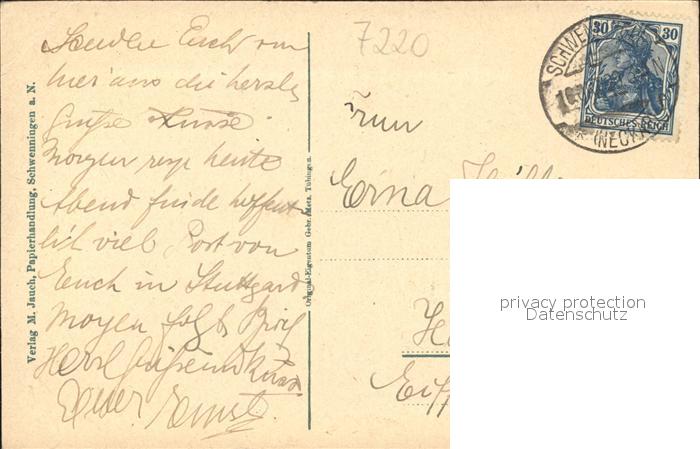 Senden Euch von
hier aus die herzl.
Grüße Küsse
Morgen resp heute
Abend finde hoffent-
lich viel Post von
Euch in Stuttgard
Morgen folgt Brief
Herzl Grüße und Küsse
Euer Ernst
Verlag M. Jauch, Papierhandlung, Schwenningen a. N.
Original-Eigentum Gebr. Metz, Tübingen.
7220
30 30
DEUTSCHES REICH
SCHWEN
(NECKA
Frau
Erna
privacy protection
Datenschutz